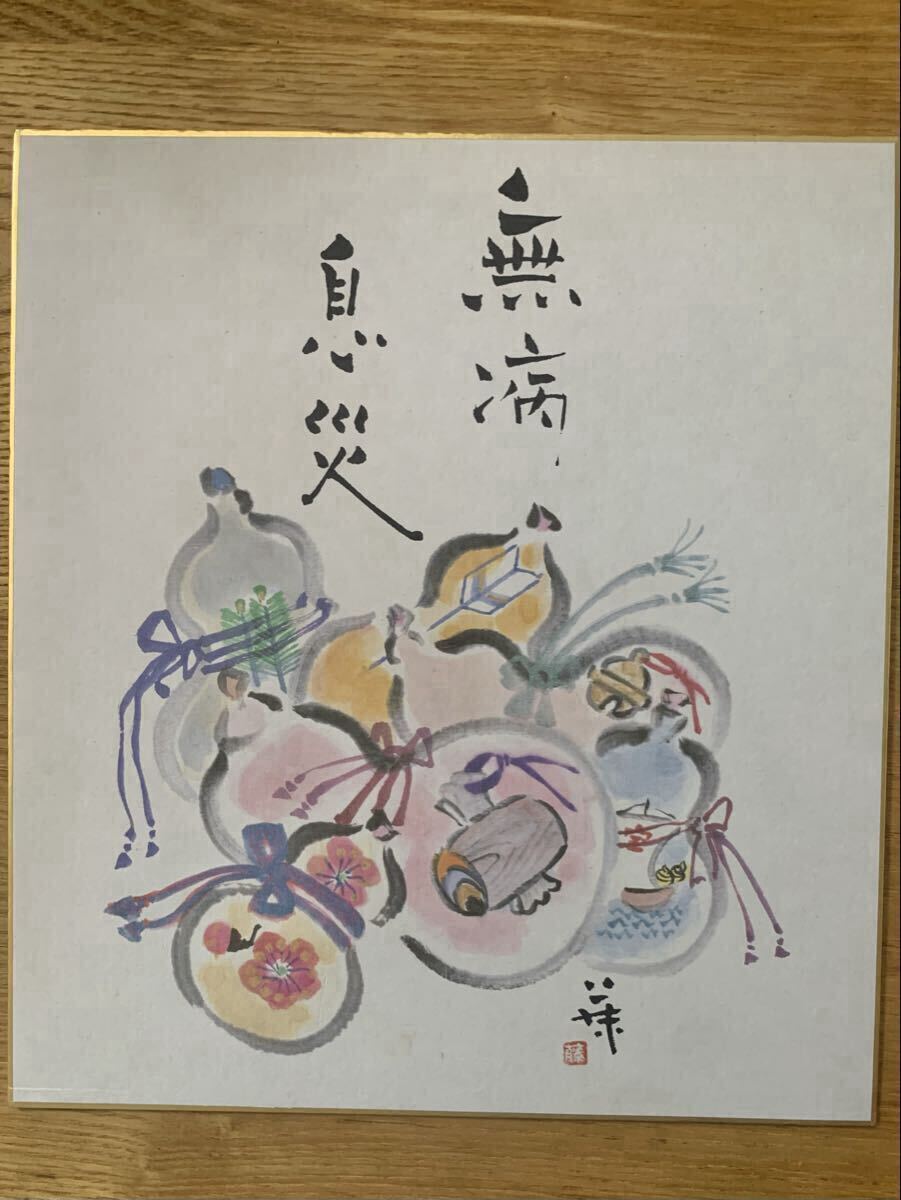 無病
息災
藤